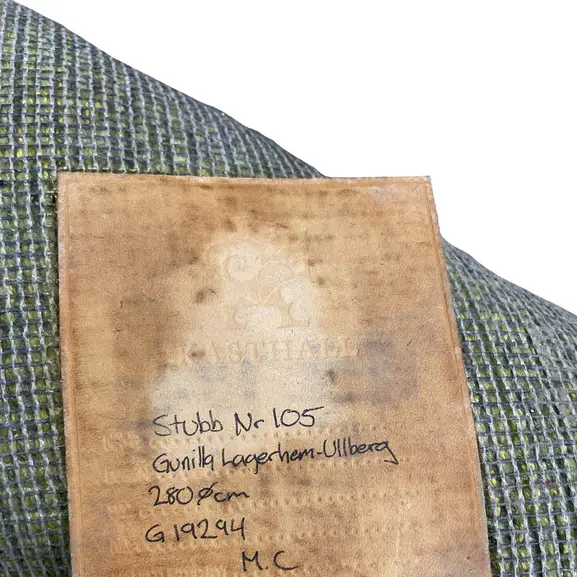 KASTHALL
Stubb Nr 105
Gunilla Lagerhem-Ullberg
280 ⌀ cm
G 19294
M.C